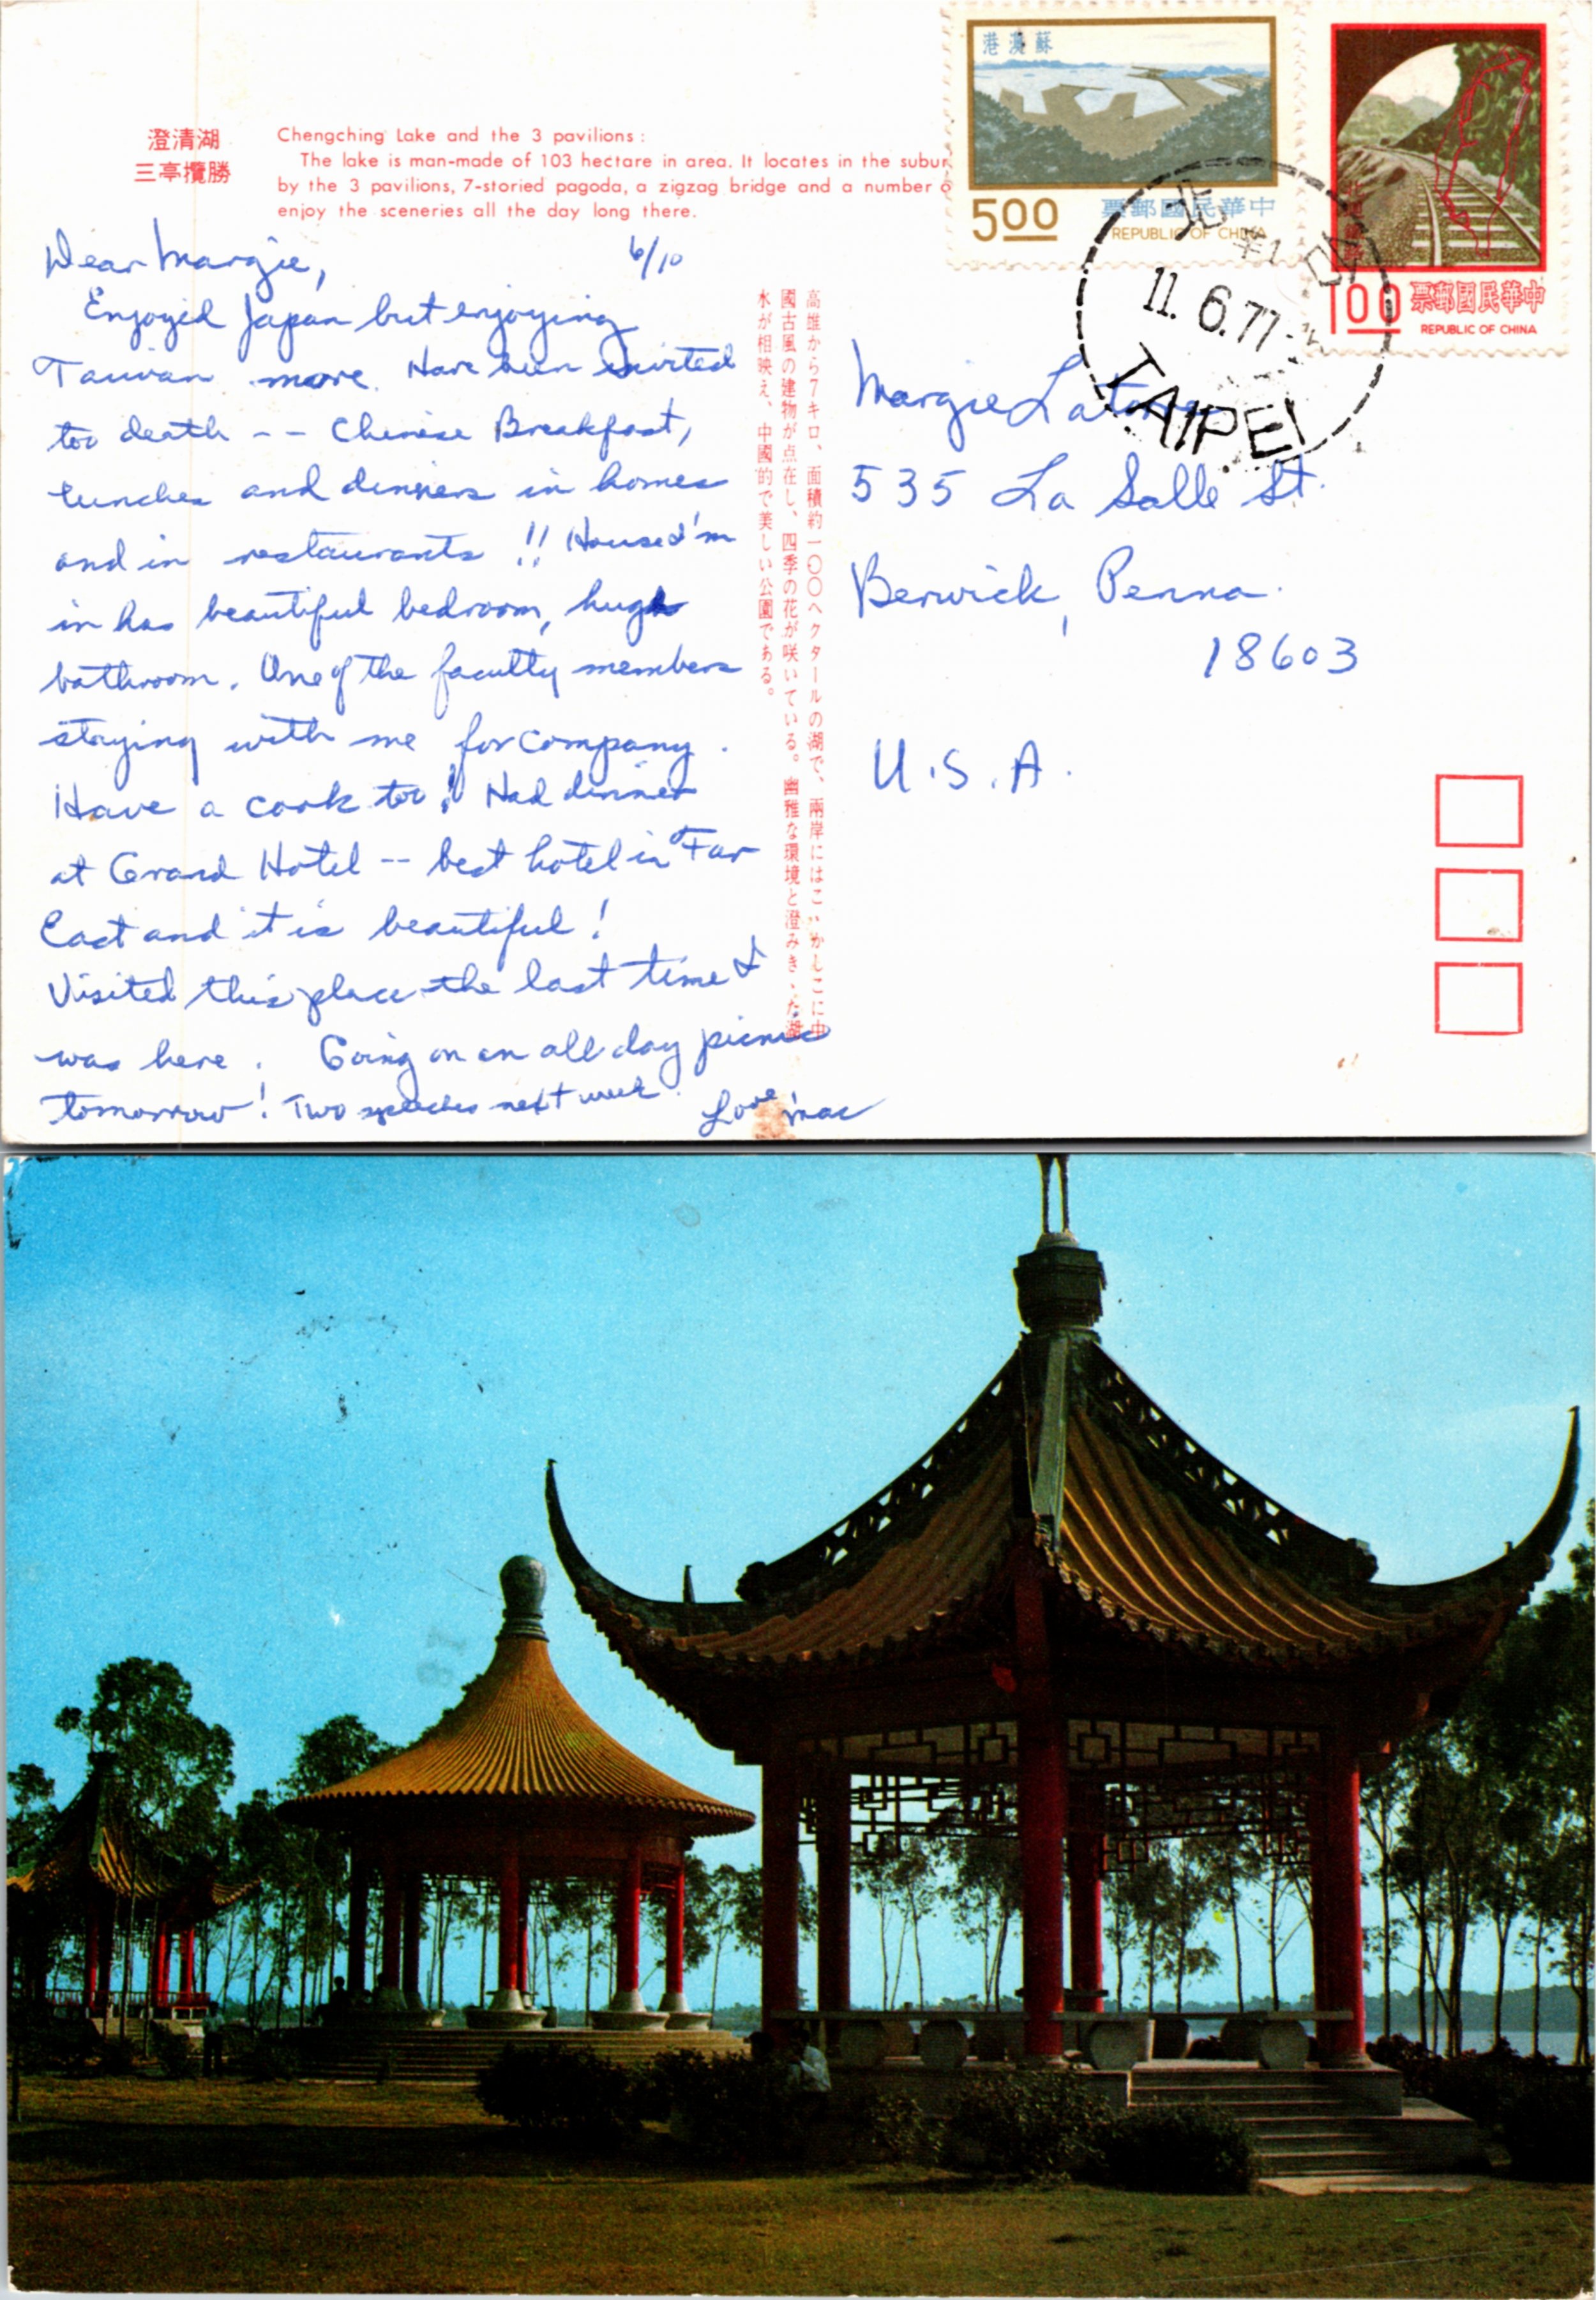 澄清湖
三亭攬勝
Chengching Lake and the 3 pavilions:
The lake is man-made of 103 hectare in area. It locates in the subur
by the 3 pavilions, 7-storied pagoda, a zigzag bridge and a number o
enjoy the sceneries all the day long there.
蘇澳港
5.00
票郵國民華中
REPUBLIC OF CHINA
1.00
票郵國民華中
REPUBLIC OF CHINA
11.6.77
TAIPEI
6/10
Dear Margie,
Enjoyed Japan but enjoying
Taiwan more. Have been
too death -- Chinese Breakfast,
lunches and dinners in homes
and in restaurants !! House I'm
in has beautiful bedroom, huge
bathroom. One of the faculty members
staying with me for company.
Have a cook too! Had dinner
at Grand Hotel -- best hotel in Far
East and it is beautiful!
Visited this place the last time I
was here. Going on an all day picnic
tomorrow! Two speeches next week.
Love Mac
高雄から7キロ、面積約一〇〇ヘクタールの湖で、兩岸にはこ かしこに中
國古風の建物が点在し、四季の花が咲いている。幽雅な環境と澄みき た湖
水が相映え、中國的で美しい公園である。
Margie
535 La Salle St.
Berwick, Penna.
18603
U.S.A.